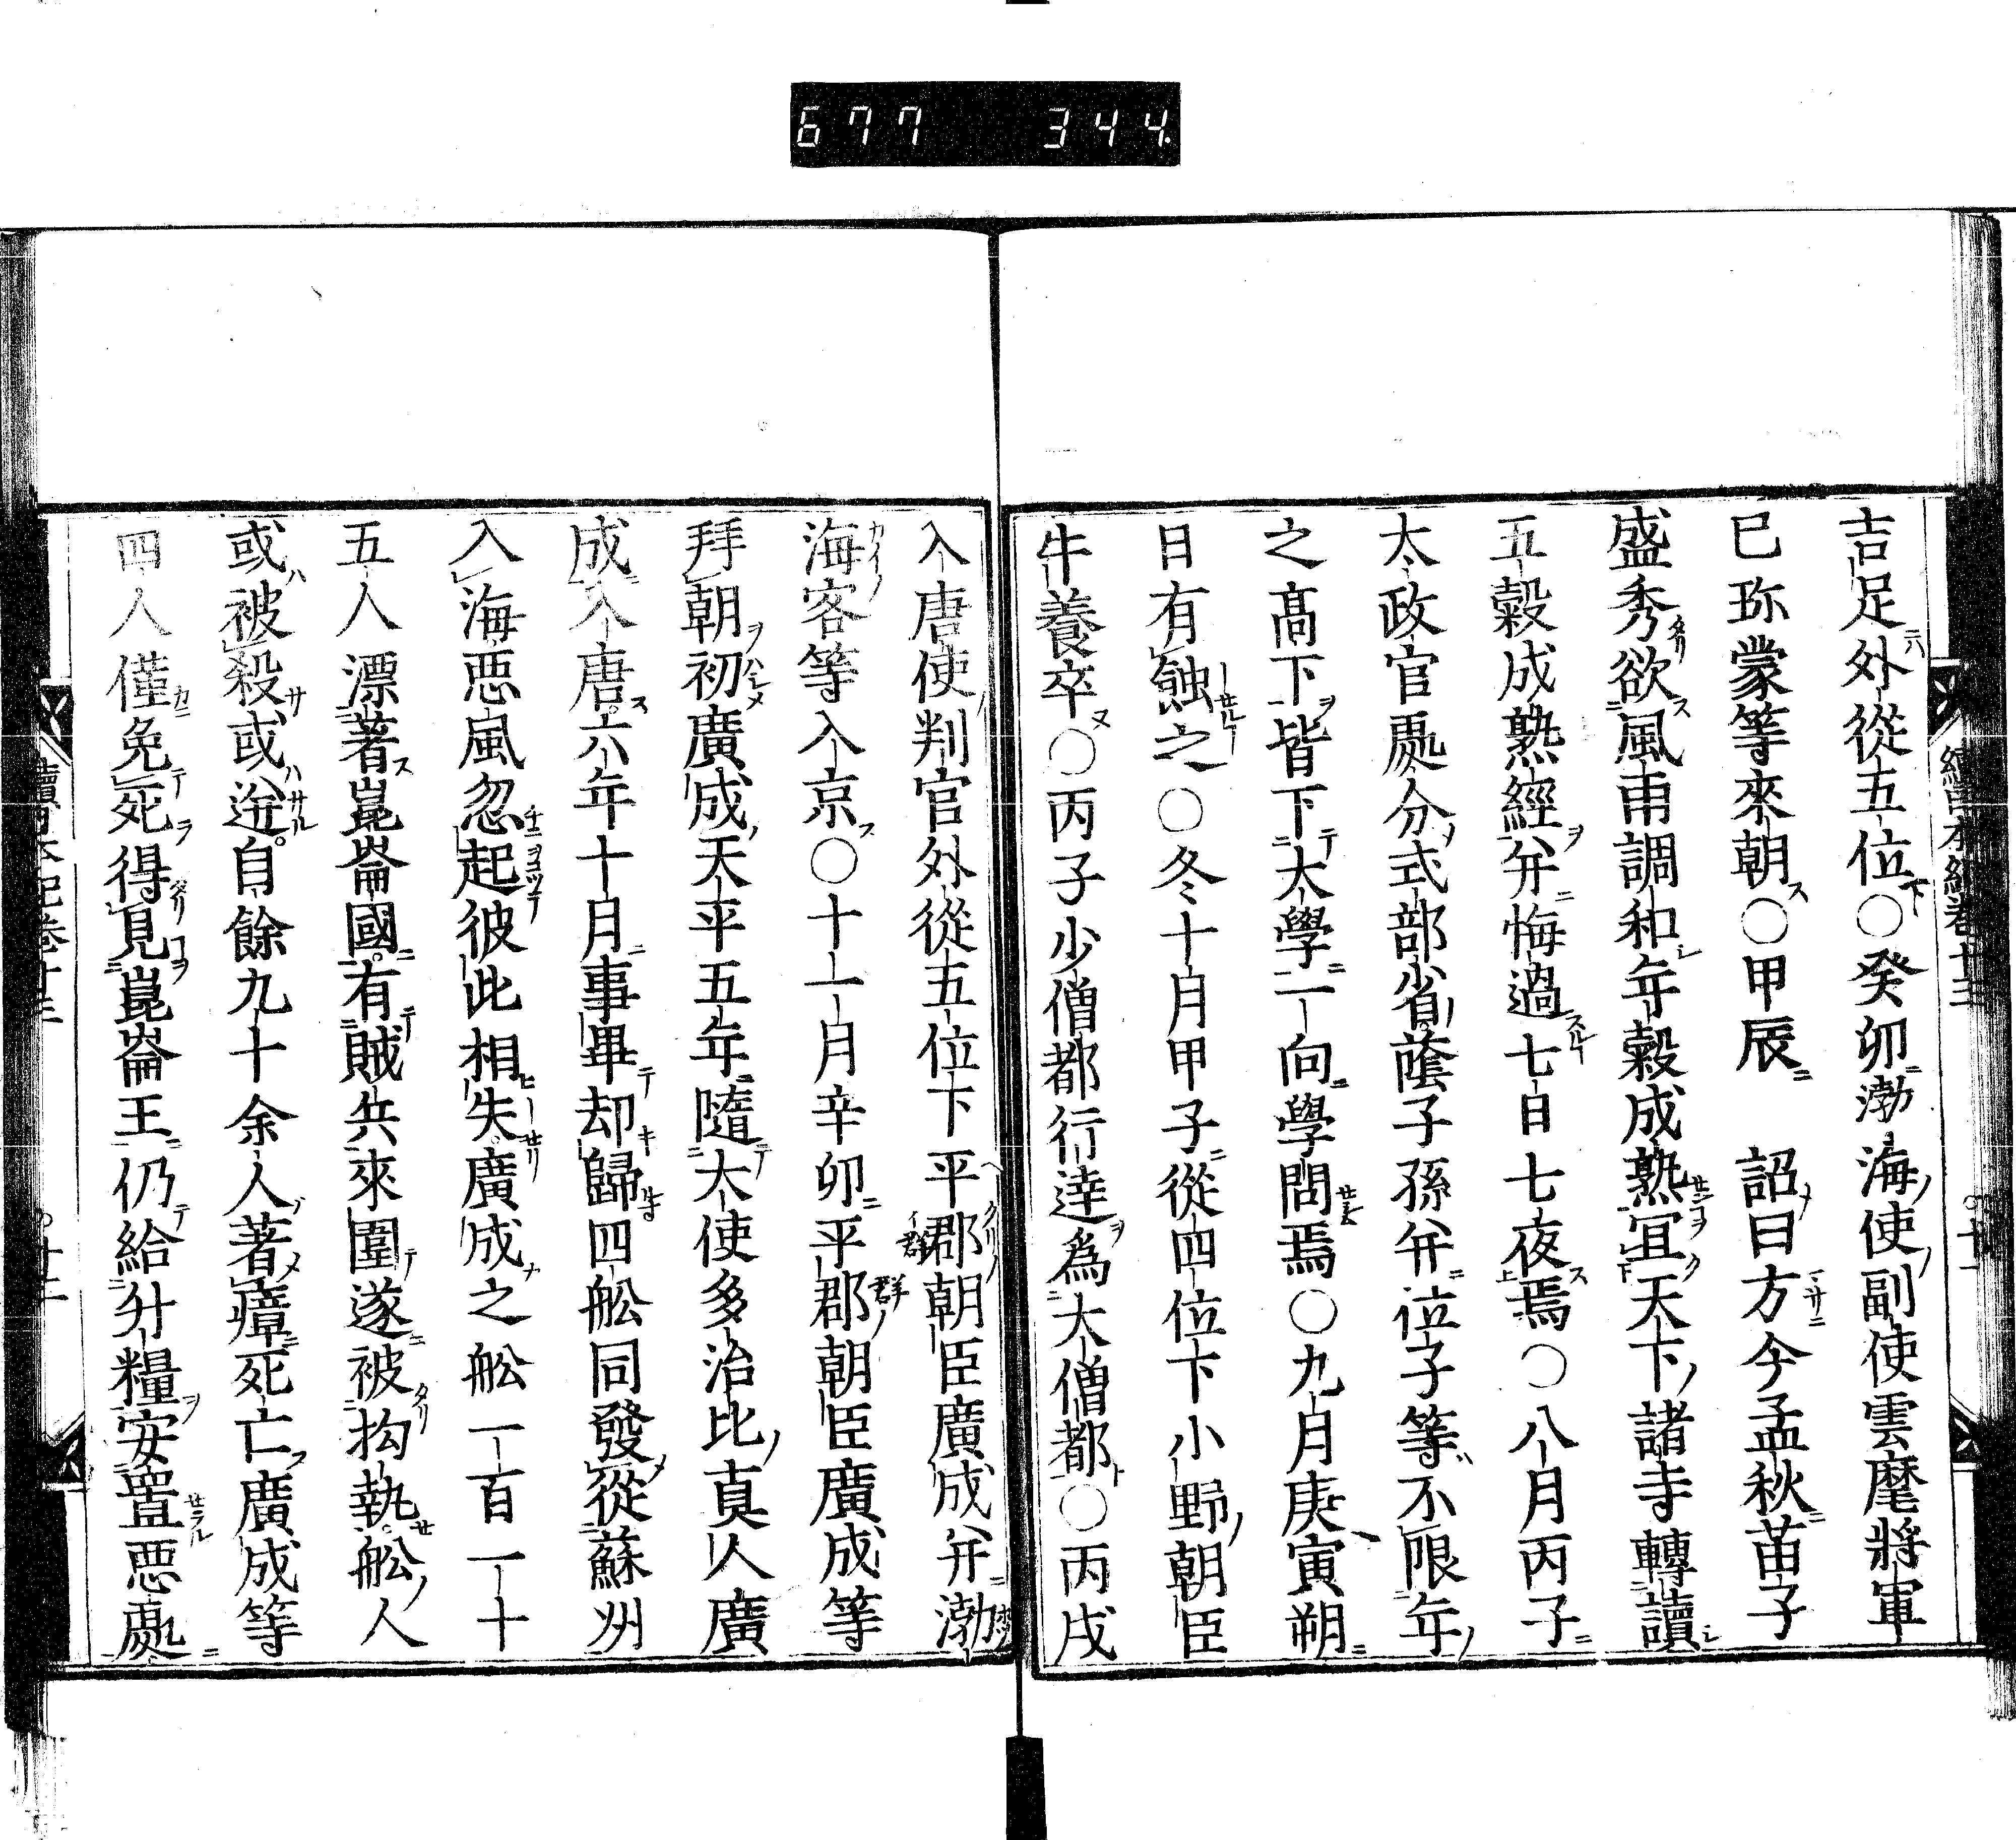 677 344
續日本紀卷十三 十一
吉足外從五位下○癸卯渤海使副使雲麾將軍
已珎蒙等來朝○甲辰 詔曰方今孟秋苗子
盛秀欲風雨調和年穀成熟宜天下諸寺轉讀
五穀成熟經并悔過七日七夜焉○八月丙子
太政官處分式部省蔭子孫并位子等不限年
之髙下皆下大學一向學問焉○九月庚寅朔
日有蝕之○冬十月甲子從四位下小野朝臣
牛養卒○丙子少僧都行達爲大僧都○丙戌
入唐使判官外從五位下平郡朝臣廣成并渤
海客等入京○十一月辛卯平郡朝臣廣成等
拜朝初廣成天平五年隨大使多治比真人廣
成入唐六年十月事畢却歸四舩同發從蘇州
入海惡風忽起彼此相失廣成之舩一百一十
五人漂著崑崙國有賊兵來圍遂被拘執舩人
或被殺或迯自餘九十余人著瘴死亡廣成等
四人僅免死得見崑崙王仍給升糧安置惡處
續日本紀卷十三 十二